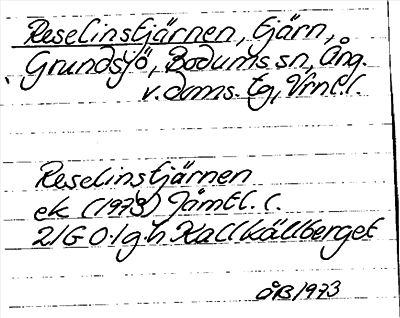 Reselinstjärnen, tjärn,
Grundsjö, Bodums sn, Ång.
v.doms. tg, Vrnl. l.
Reselinstjärnen
ek (1973) Jämtl. l.
21G 0-1 g-h Kallkällberget
ÅB 1973